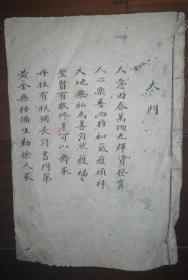 大門
天意回春萬物光輝資發育
人心樂善四時和氣履禎祥
天地無私為善自然獲福
聖賢有教修身可以齊家
丹桂有根獨長詩書門第
黃金無種偏生勤儉人家